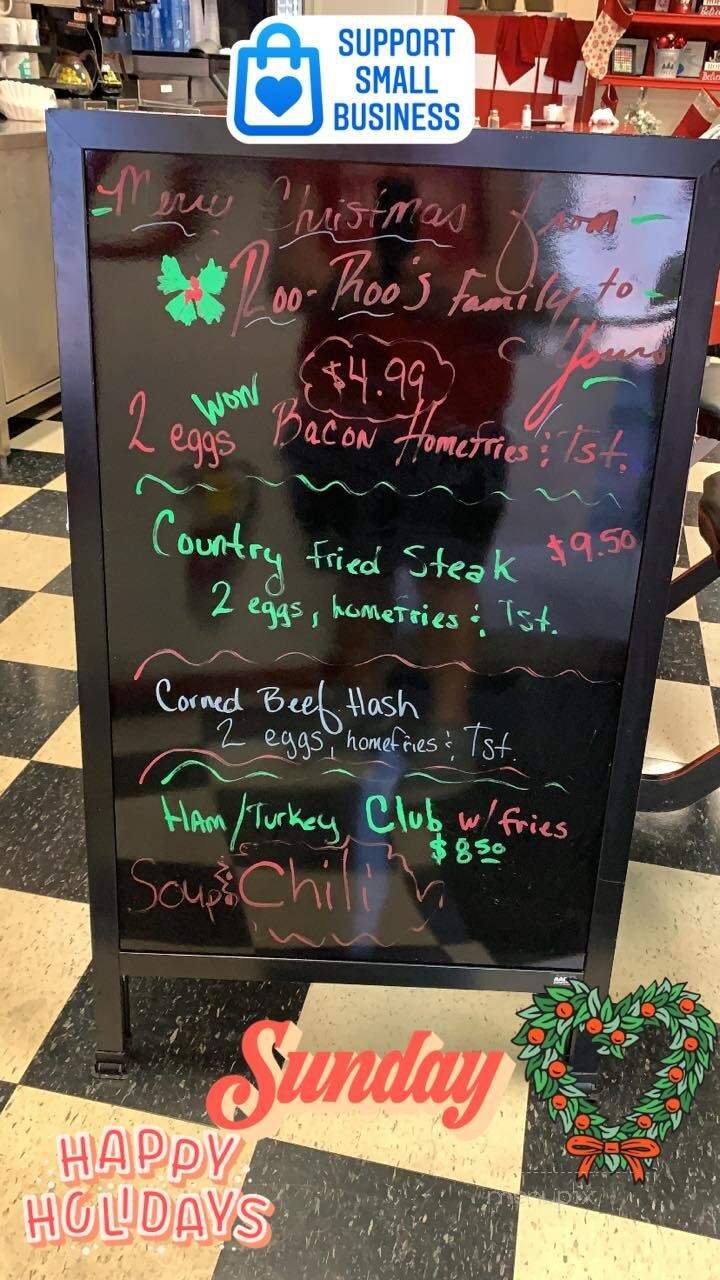 SUPPORT
SMALL
BUSINESS
Merry Christmas from
Roo-Roo's Family to
Yours
$4.99
WOW
2 eggs Bacon Homefries & Tst.
Country Fried Steak $9.50
2 eggs, homefries & Tst.
Corned Beef Hash
2 eggs, homefries & Tst.
HAM/Turkey Club w/fries
$8.50
Soup & Chili
Sunday
HAPPY
HOLIDAYS
menupix